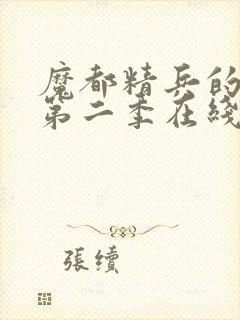 魔都精兵的
第二季在綫
張續